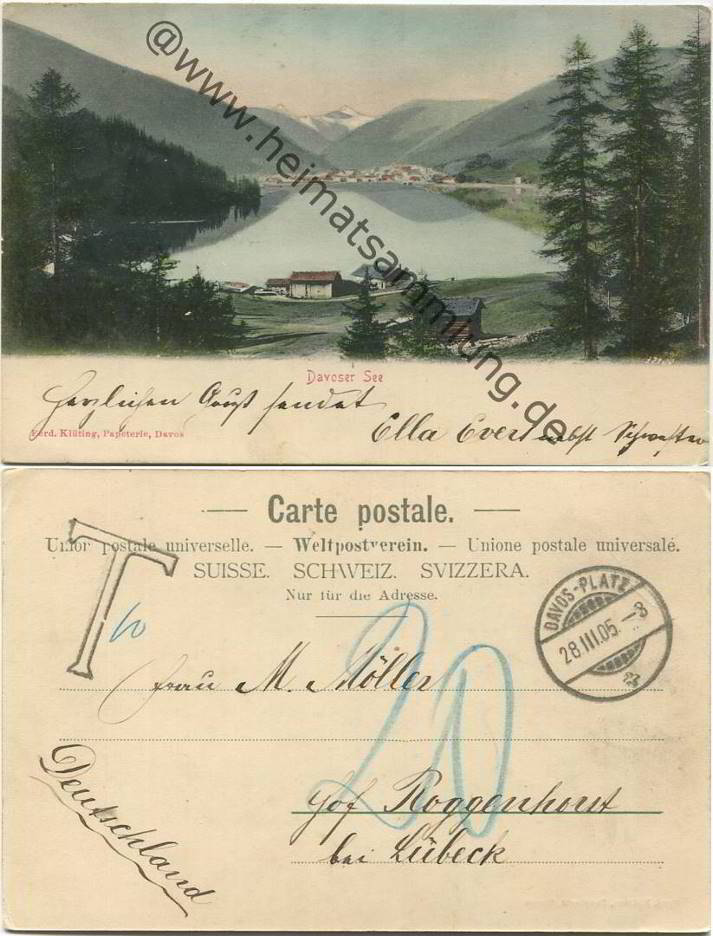 @www.heimatsammlung.de
Davoser See
Herzlichen Gruß sendet
Ella Evers nebst Schwester
Ferd. Klüting, Papeterie, Davos
Carte postale.
Union postale universelle. — Weltpostverein. — Unione postale universale.
SUISSE. SCHWEIZ. SVIZZERA.
Nur für die Adresse.
T
10
DAVOS-PLATZ
28.III.05.-8
20
Frau M. Möller
Hof Roggenhorst
bei Lübeck
Deutschland